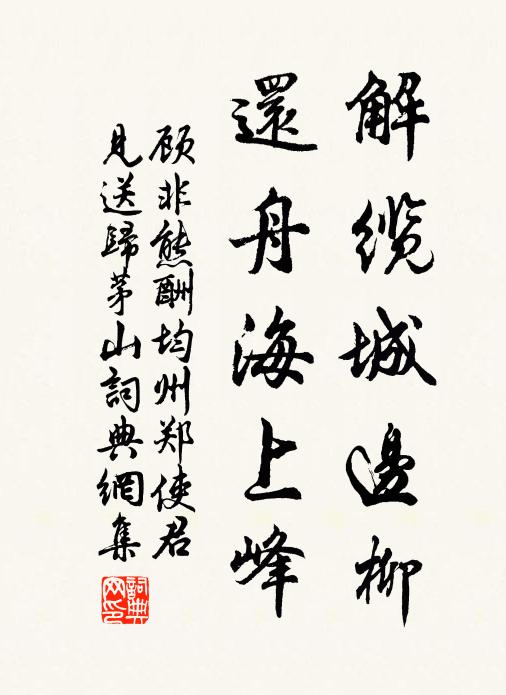 解缆城邊柳
還舟海上峰
顾非熊酬均州郑使君
見送歸茅山詞典網集
詞典
网印